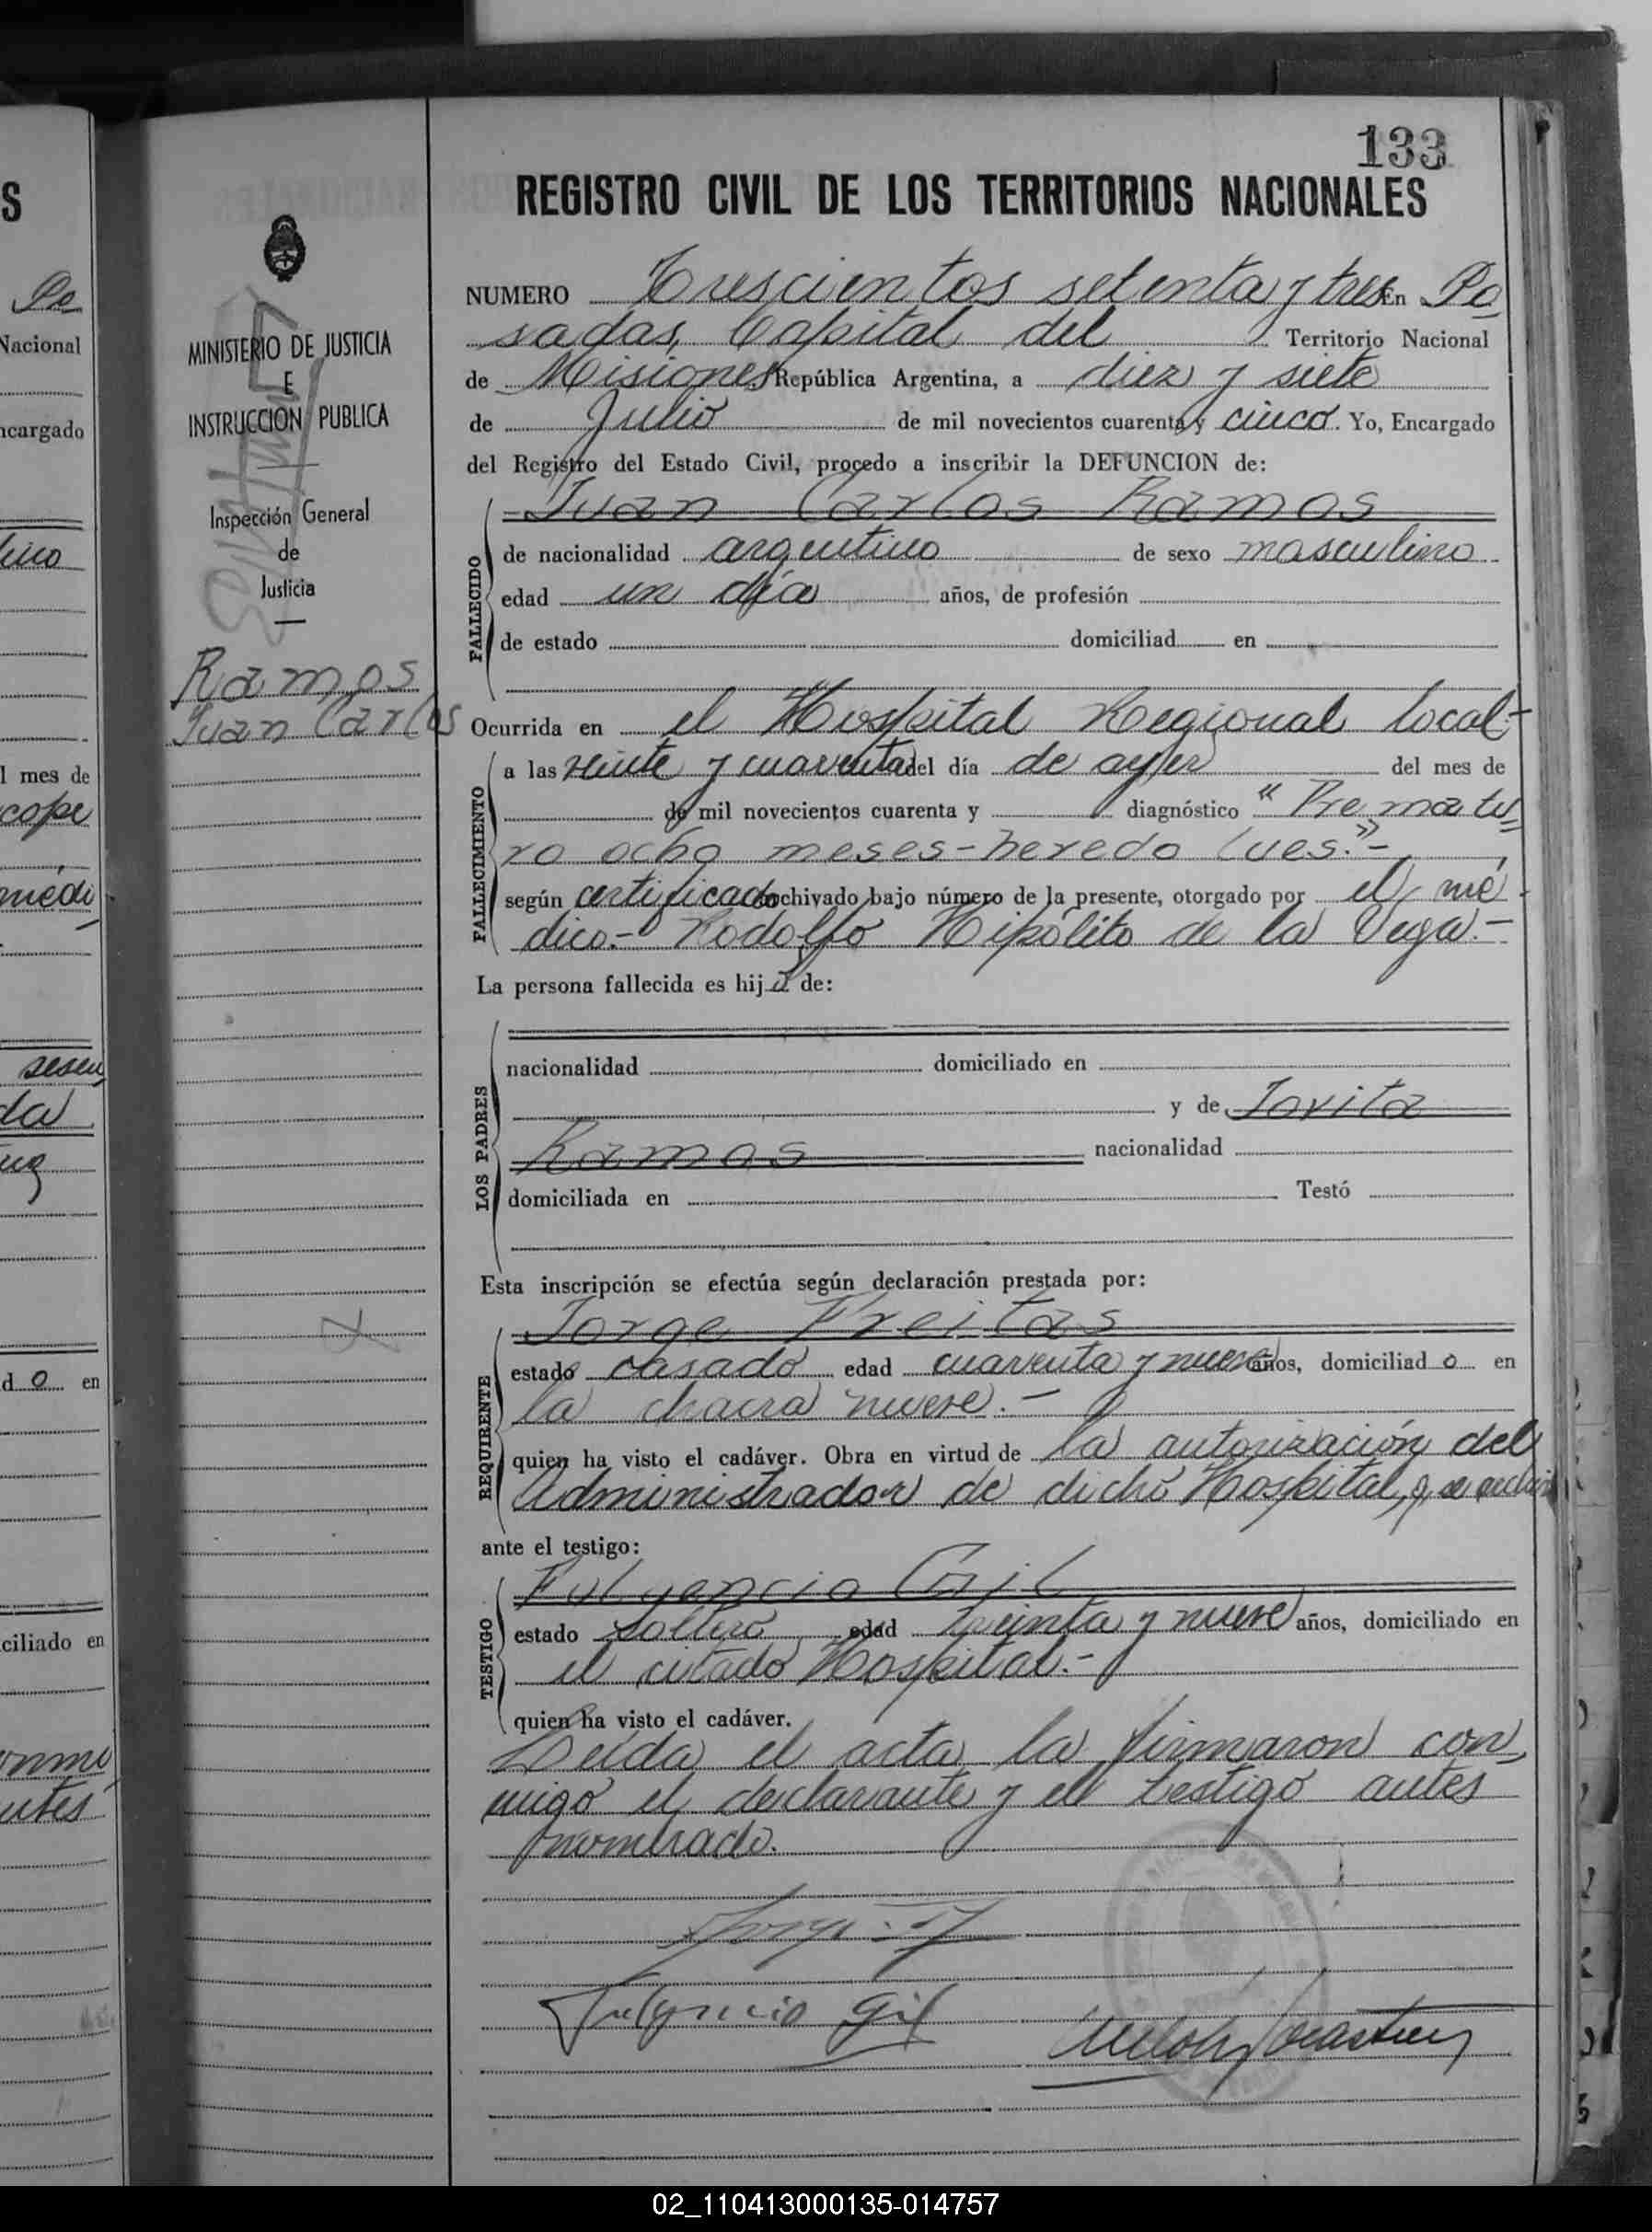 133
REGISTRO CIVIL DE LOS TERRITORIOS NACIONALES
MINISTERIO DE JUSTICIA
E
INSTRUCCION PUBLICA
Inspección General
de
Justicia
Ramos
Juan Carlos
NUMERO Trescientos setenta y tres En Po
sadas, Capital del Territorio Nacional
de Misiones República Argentina, a diez y siete
de Julio de mil novecientos cuarenta y cinco. Yo, Encargado
del Registro del Estado Civil, procedo a inscribir la DEFUNCION de:
Juan Carlos Ramos
FALLECIDO
de nacionalidad argentino de sexo masculino
edad un día años, de profesión
de estado domiciliad en
Ocurrida en el Hospital Regional local-
FALLECIMIENTO
a las veinte y cuarenta del día de ayer del mes de
de mil novecientos cuarenta y diagnóstico "Prematu
ro ocho meses-heredo lues."-
según certificado archivado bajo número de la presente, otorgado por el mé
dico.- Rodolfo Hipólito de la Vega.-
La persona fallecida es hijo de:
LOS PADRES
nacionalidad domiciliado en
y de Jovita
Ramos nacionalidad
domiciliada en Testó
Esta inscripción se efectúa según declaración prestada por:
Jorge Freitas
REQUIRENTE
estado casado edad cuarenta y nueve años, domiciliad o en
la chacra nueve.-
quien ha visto el cadáver. Obra en virtud de la autorización del
Administrador de dicho Hospital, q. se
ante el testigo:
Fulgencio Gil
TESTIGO
estado soltero edad treinta y nueve años, domiciliado en
el citado Hospital.-
quien ha visto el cadáver.
Leída el acta la firmaron con
migo el declarante y el testigo antes
nombrado.
Jorge
Fulgencio Gil
02_110413000135-014757